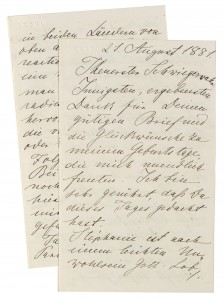 in beiden Ländern von
oben a
21 August 1881
Theuerster Schwiegervater
Innigsten, ergebensten
Dank für Deinen
gütigen Brief und
die Glückwünsche zu
meinem Geburtstage,
die mich unendlich
freuten. Ich bin
sehr gerührt, daß Du
dieses Tages gedacht
hast.
Stephanie ist nach
einem leichten Un-
wohlsein Gott Lob,